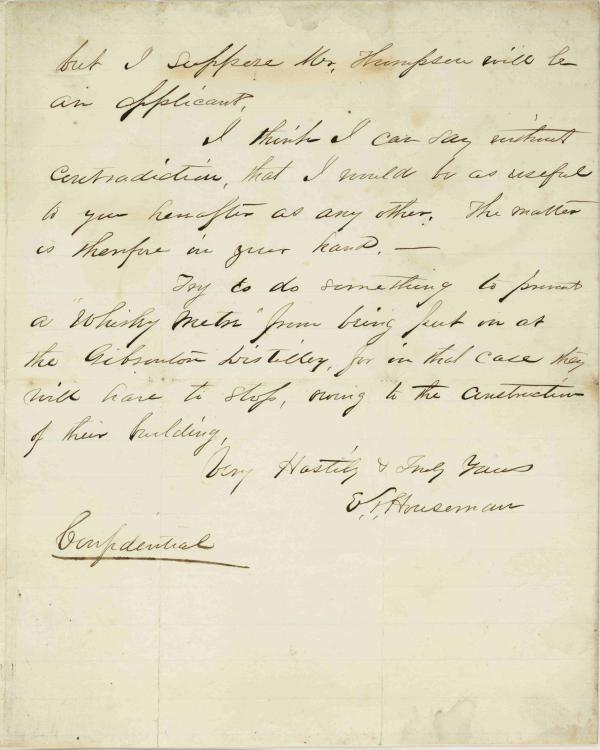 but I suppose Mr. Thompson will be
an applicant.
I think I can say without
contradiction, that I would be as useful
to you hereafter as any other. The matter
is therefore in your hand. —
Try to do something to prevent
a "Whisky Metre" from being put on at
the Gibsonton Distillery, for in that case they
will have to stop, owing to the construction
of their building,
Very Hastily & Truly Yours
Houseman
Confidential